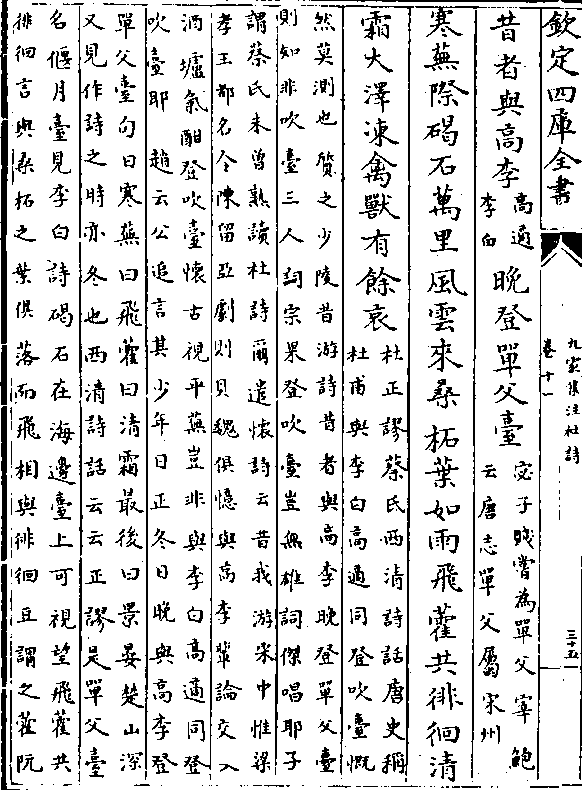 欽定四庫全書
九家集注杜詩
卷十一
三五
昔者與高李高適李白晚登單父臺宓子賤嘗為單父宰鮑云唐志單父屬宋州
寒蕪際碣石萬里風雲來桑柘葉如雨飛藿共徘徊清
霜大澤凍禽獸有餘哀杜正謬蔡氏西清詩話唐史稱杜甫與李白高適同登吹臺慨
然莫測也質之少陵昔游詩昔者與高李晚登單父臺
則知非吹臺三人詞宗果登吹臺豈無雄詞傑唱耶子
謂蔡氏未曾熟讀杜詩爾遣懷詩云昔我游宋中惟梁
孝王都名今陳留亞劇則貝魏俱憶與高李輩論交入
酒壚氣酣登吹臺懷古視平蕪豈非與李白高適同登
吹臺耶 趙云公追言其少年日正冬日晚與高李登
單父臺句曰寒蕪曰飛藿曰清霜最後曰景晏楚山深
又見作詩之時亦冬也西清詩話云云正謬是單父臺
名偃月臺見李白詩碣石在海邊臺上可視望飛藿共
徘徊言與桑柘之葉俱落而飛相與徘徊且謂之藿阮